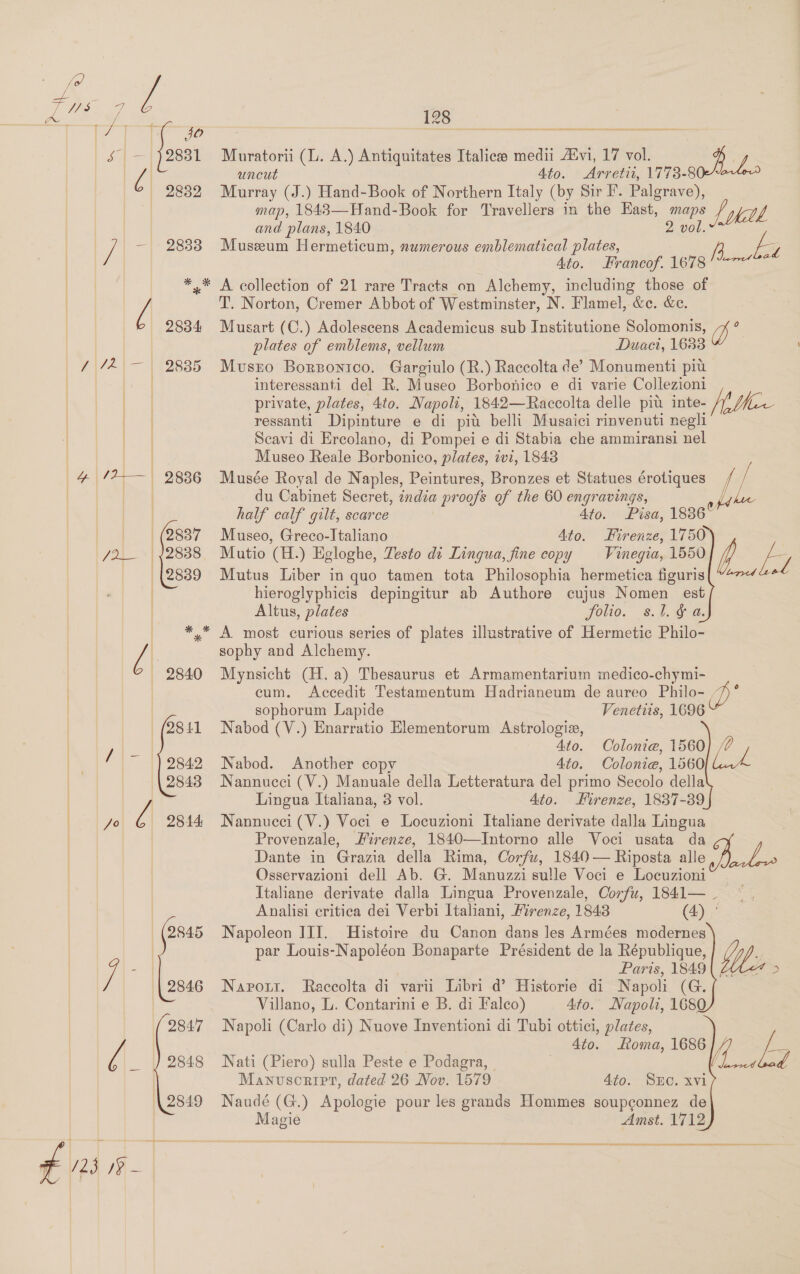 128
2831 Muratorii (L. A.) Antiquitates Italicæ medii Ævi, 17 vol.
uncut 4to. Arretii, 1773-80
2832 Murray (J.) Hand-Book of Northern Italy (by Sir F. Palgrave),
map, 1843—Hand-Book for Travellers in the East, maps
and plans, 1840 2 vol.
2833 Musæum Hermeticum, numerous emblematical plates,
4to. Francof. 1678
*** A collection of 21 rare Tracts on Alchemy, including those of
T. Norton, Cremer Abbot of Westminster, N. Flamel, &c. &c.
2834 Musart (C.) Adolescens Academicus sub Institutione Solomonis,
plates of emblems, vellum Duaci, 1633
2835 Museo Borbonico. Gargiulo (R.) Raccolta de' Monumenti più
interessanti del R. Museo Borbonico e di varie Collezioni
private, plates, 4to. Napoli, 1842—Raccolta delle più inte-
ressanti Dipinture e di più belli Musaici rinvenuti negli
Scavi di Ercolano, di Pompei e di Stabia che ammiransi nel
Museo Reale Borbonico, plates, ivi, 1843
2836 Musée Royal de Naples, Peintures, Bronzes et Statues érotiques
du Cabinet Secret, india proofs of the 60 engravings,
half calf gilt, scarce 4to. Pisa, 1836
2837 Museo, Greco-Italiano 4to. Firenze, 1750
2838 Mutio (H.) Egloghe, Testo di Lingua, fine copy Vinegia, 1550
2839 Mutus Liber in quo tamen tota Philosophia hermetica figuris
hieroglyphicis depingitur ab Authore cujus Nomen est
Altus, plates folio. s. l. & a.
*** A most curious series of plates illustrative of Hermetic Philo-
sophy and Alchemy.
2840 Mynsicht (H. a) Thesaurus et Armamentarium medico-chymi-
cum. Accedit Testamentum Hadrianeum de aureo Philo-
sophorum Lapide Venetiis, 1696
2841 Nabod (V.) Enarratio Elementorum Astrologiæ,
4to. Coloniæ, 1560
2842 Nabod. Another copy 4to. Coloniæ, 1560
2843 Nannucci (V.) Manuale della Letteratura del primo Secolo della
Lingua Italiana, 3 vol. 4to. Firenze, 1837-39
2844 Nannucci (V.) Voci e Locuzioni Italiane derivate dalla Lingua
Provenzale, Firenze, 1840—Intorno alle Voci usata da
Dante in Grazia della Rima, Corfu, 1840—Riposta alle
Osservazioni dell Ab. G. Manuzzi sulle Voci e Locuzioni
Italiane derivate dalla Lingua Provenzale, Corfu, 1841—
Analisi critica dei Verbi Italiani, Firenze, 1843 (4)
2845 Napoleon III. Histoire du Canon dans les Armées modernes
par Louis-Napoléon Bonaparte Président de la République,
Paris, 1849
2846 Napoli. Raccolta di varii Libri d' Historie di Napoli (G.
Villano, L. Contarini e B. di Falco) 4to. Napoli, 1680
2847 Napoli (Carlo di) Nuove Inventioni di Tubi ottici, plates,
4to. Roma, 1686
2848 Nati (Piero) sulla Peste e Podagra,
Manuscript, dated 26 Nov. 1579 4to. Sec. xvi
2849 Naudé (G.) Apologie pour les grands Hommes soupçonnez de
Magie Amst. 1712